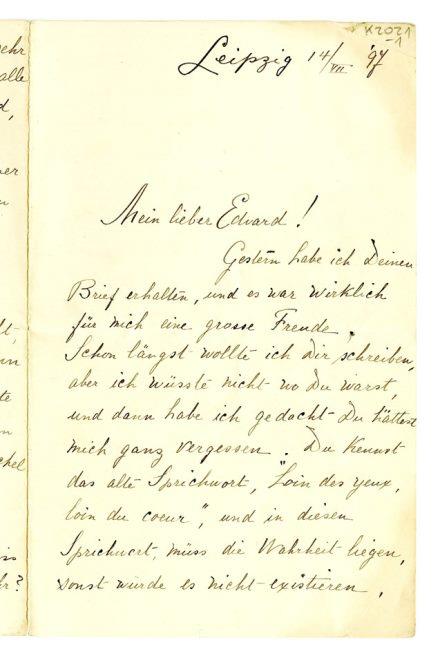 K2021
-1
Leipzig 14/VII '97
Mein lieber Edvard!
Gestern habe ich Deinen
Brief erhalten, und es war wirklich
für mich eine grosse Freude.
Schon längst wollte ich Dir schreiben,
aber ich wüsste nicht wo Du warst,
und dann habe ich gedacht Du hättest
mich ganz vergessen. Du kennst
das alte Sprichwort, "Loin des yeux,
loin du coeur", und in diesen
Sprichwort, müss die Wahrheit liegen,
sonst würde es nicht existieren.